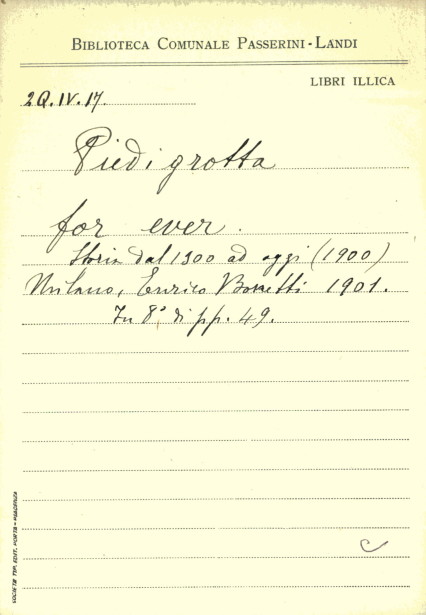 BIBLIOTECA COMUNALE PASSERINI-LANDI
LIBRI ILLICA
2Q.IV.17.
Piedigrotta
for ever.
Storia dal 1300 ad oggi (1900)
Milano, Enrico Bonetti 1901.
In 8° di pp. 49.
SOCIETÀ TIP. EDIT. PORTA - PIACENZA